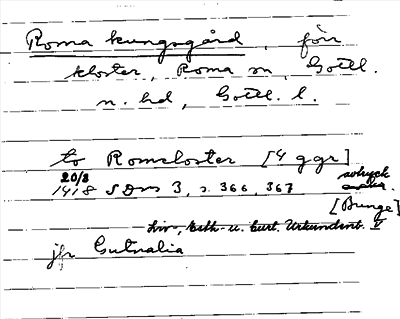 Roma kungsgård, förr
kloster, Roma sn, Gotl.
n. hd, Gotl. l.
to Romacloster [4 ggr]
20/3
1418 SDns 3, s. 366, 367 avtryck
[Bunge]
Liv-, Esth- u. Curl. Urkundenb. V
jfr Gutnalia